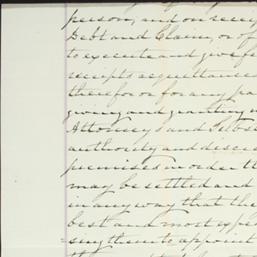 person, and on receip
Debt and Claim, or of
to execute and give fo
receipts acquittances
therefor or for any pa
giving and granting u
Attorneys and Subs
authority and discre
premises in order th
may be settled and
in any way that the
best and most expe
sing them to appoint